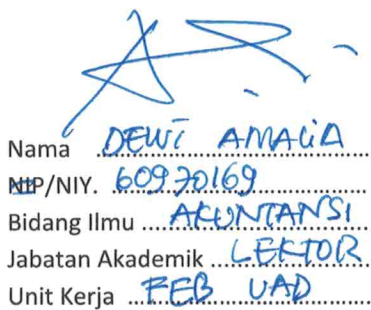 Nama DEWI AMALIA
NIP/NIY. 60970169
Bidang Ilmu AKUNTANSI
Jabatan Akademik LEKTOR
Unit Kerja FEB UAD